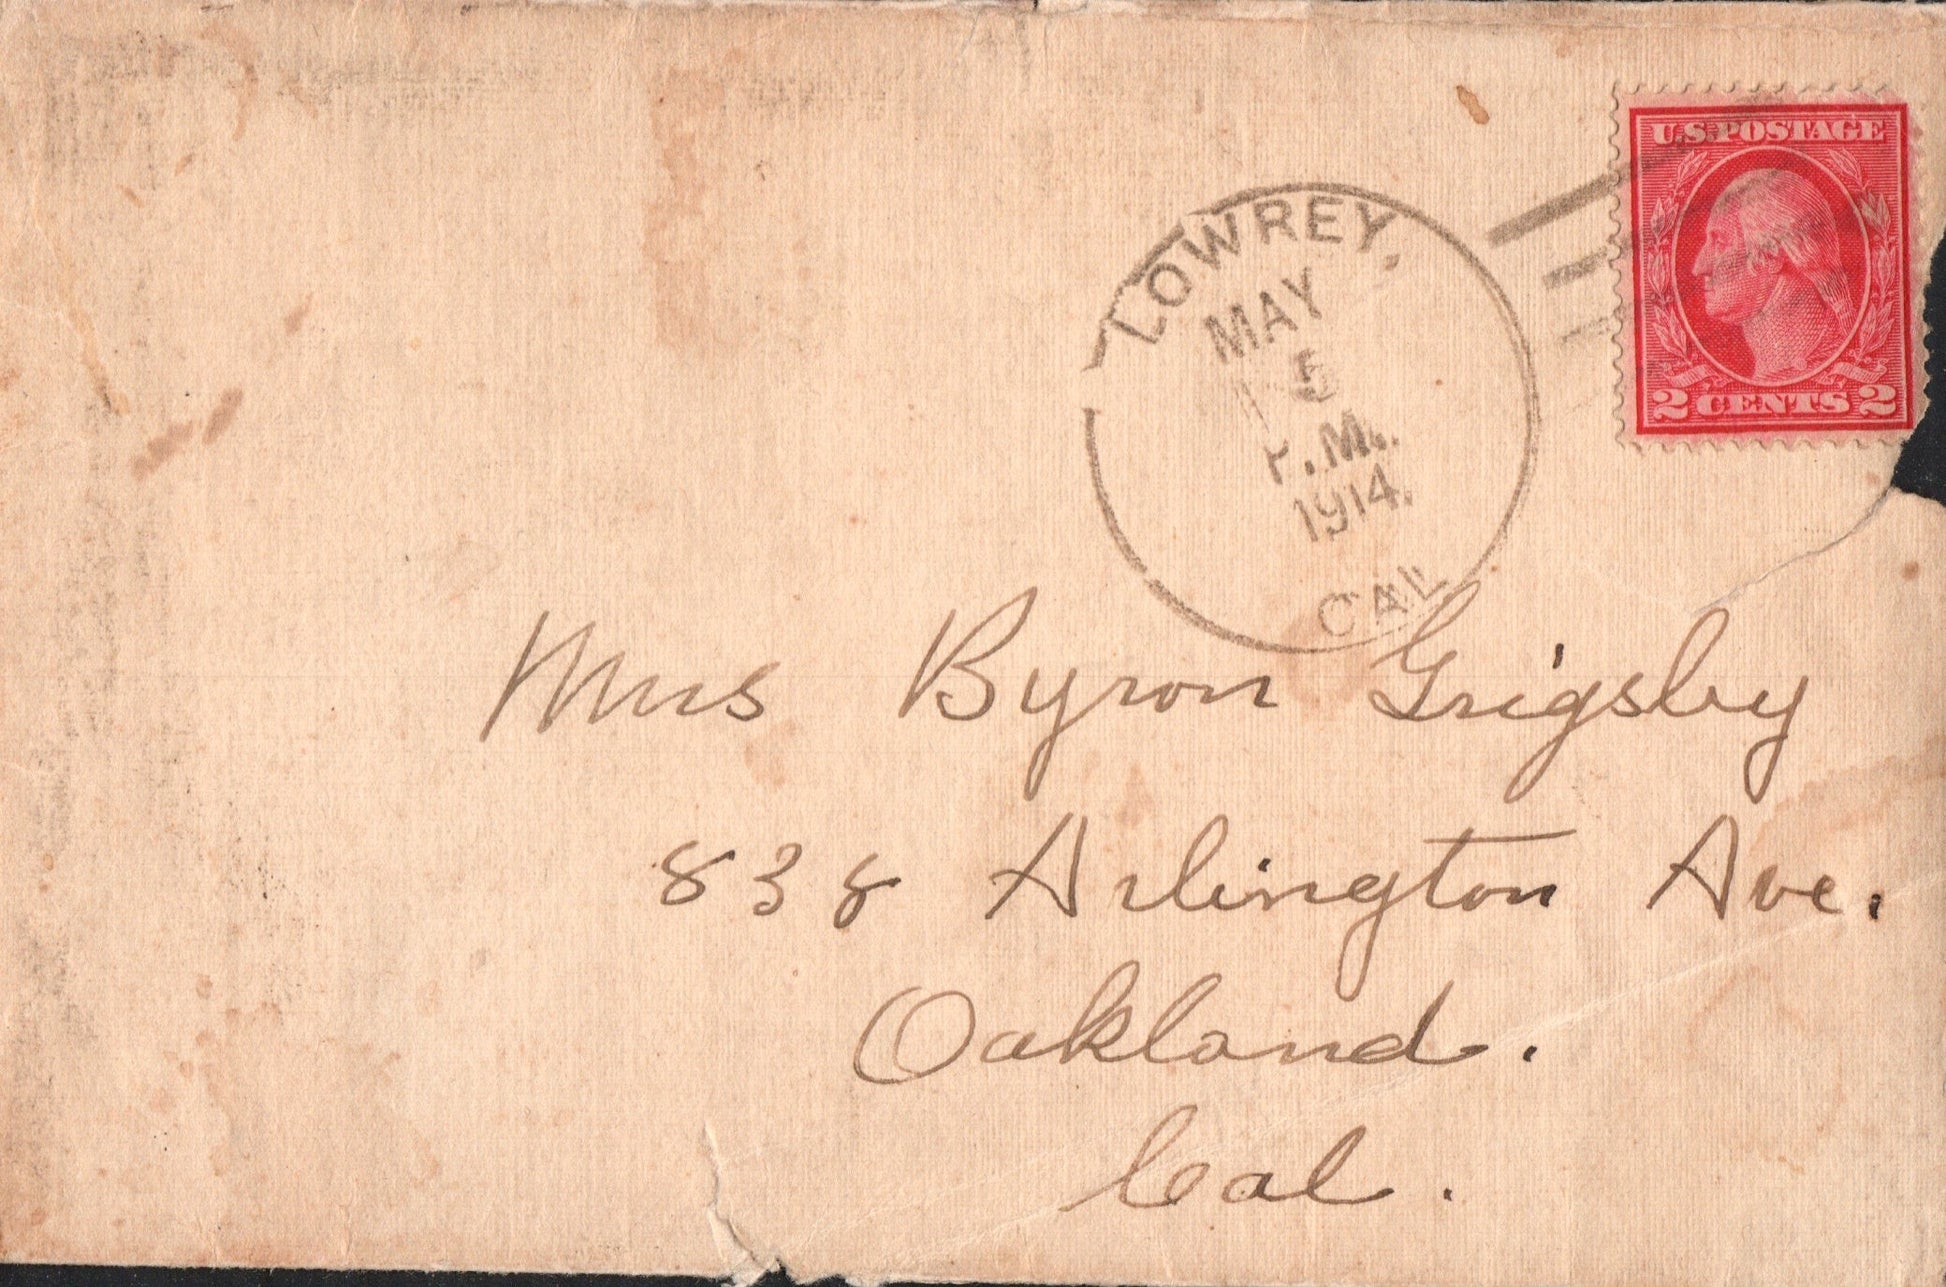 U.S. POSTAGE
2 CENTS 2
LOWREY,
MAY
5
P.M.
1914.
CAL
Mrs Byron Grigsby
838 Arlington Ave.
Oakland.
Cal.